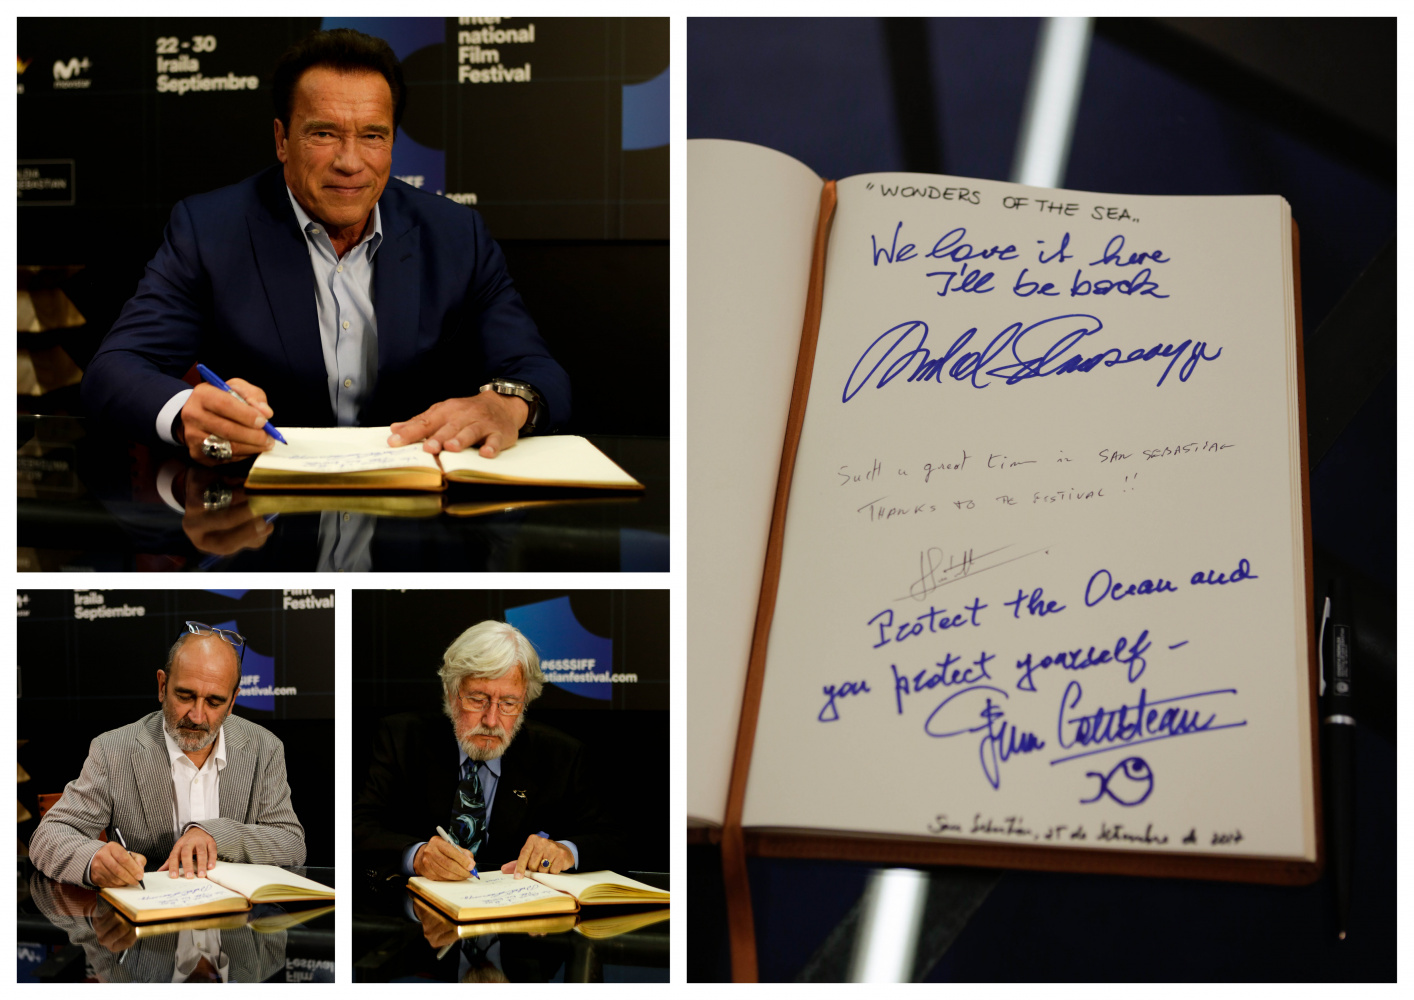 M+
movistar
22 - 30
Iraila
Septiembre
Inter-
national
Film
Festival
SEBASTIAN
SSIFF
.com
Iraila
Septiembre
Film
Festival
SSIFF
festival.com
#65SSIFF
stianfestival.com
"WONDERS OF THE SEA"
We love it here
I'll be back
Arnold Schwarzenegger
Such a great time in SAN SEBASTIAN
THANKS TO THE FESTIVAL !!
Protect the Ocean and
you protect yourself -
Cousteau
San Sebastián, 25 de Setiembre de 2017